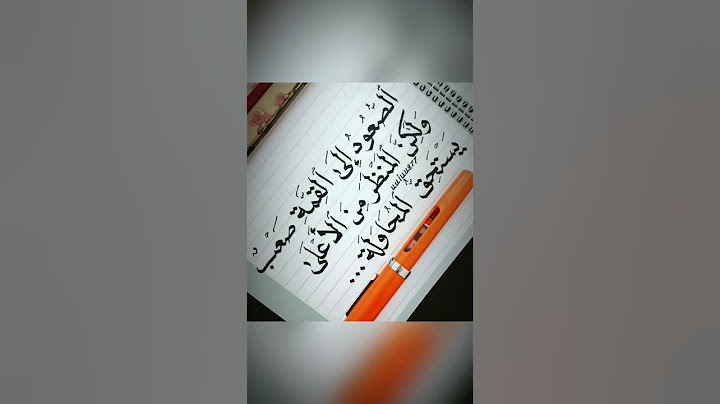 الصُّعُودُ إِلَى القِمَّةِ صَعْبٌ
وَلَكِنَّ المَنْظَرَ مِنَ الأَعْلَى
يَسْتَحِقُّ المُحَاوَلَةَ...